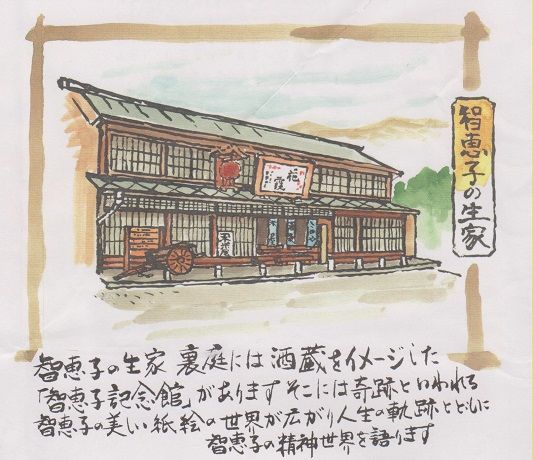 智恵子の生家
花霞
智恵子の生家 裏庭には 酒蔵をイメージした
「智恵子記念館」があります そこには奇跡といわれる
智恵子の美しい紙絵の世界が広がり人生の軌跡とともに
智恵子の精神世界を語ります